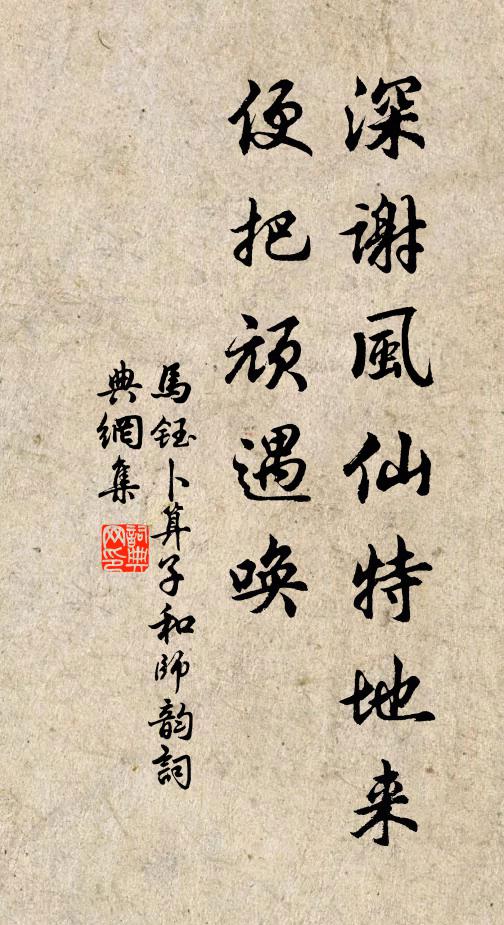 深谢風仙特地来
便把頑遇唤
馬鈺卜算子和師韵詞
典網集
詞典网印